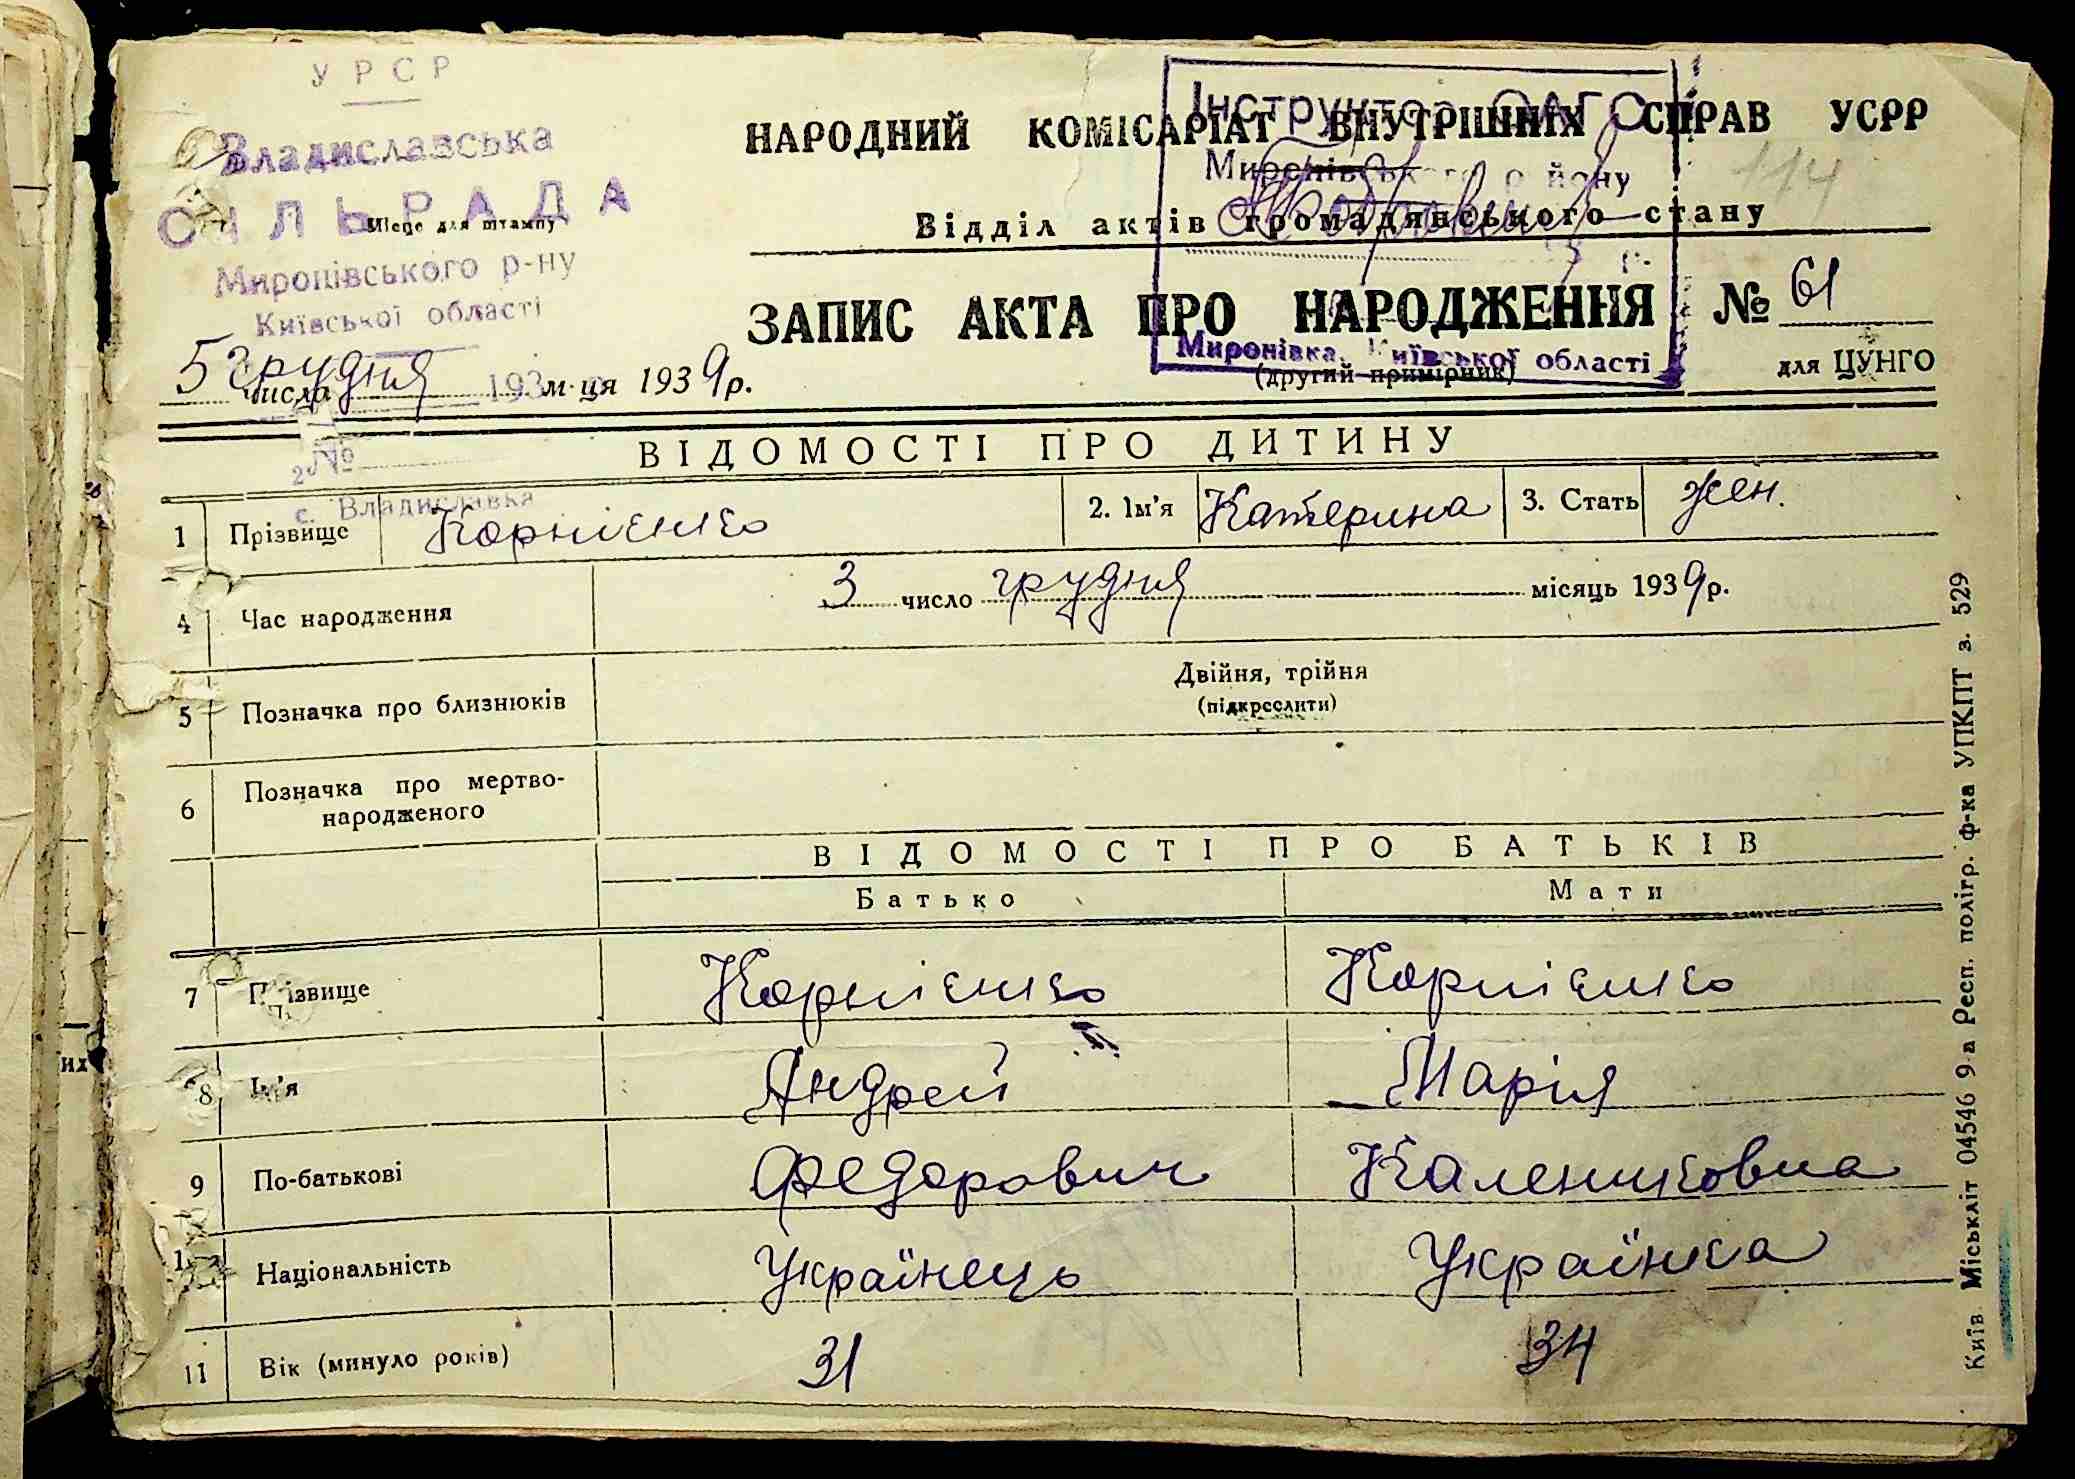 УРСР
Владиславська
СІЛЬРАДА
Місце для штампу
Миронівського р-ну
Київської області
193
№
с. Владиславка
Інструктор ОАГС
Миронівського району
Миронівка, Київської області
НАРОДНИЙ КОМІСАРІАТ ВНУТРІШНІХ СПРАВ УСРР
114
Відділ актів громадянського стану
ЗАПИС АКТА ПРО НАРОДЖЕННЯ № 61
(другий примірник)
для ЦУНГО
5 числа грудня м-ця 1939 р.
ВІДОМОСТІ ПРО ДИТИНУ
1 Прізвище Корнієнко 2. Ім'я Катерина 3. Стать жен.
4 Час народження 3 число грудня місяць 1939 р.
5 Позначка про близнюків Двійня, трійня
(підкреслити)
6 Позначка про мертво-
народженого
ВІДОМОСТІ ПРО БАТЬКІВ
Батько Мати
7 Прізвище Корнієнко Корнієнко
8 Ім'я Андрей Марія
9 По-батькові Федорович Калениковна
Національність Українець Українка
11 Вік (минуло років) 31 34
Київ. Міськліт 04546 9-а Респ. полігр. ф-ка УПКПТ з. 529